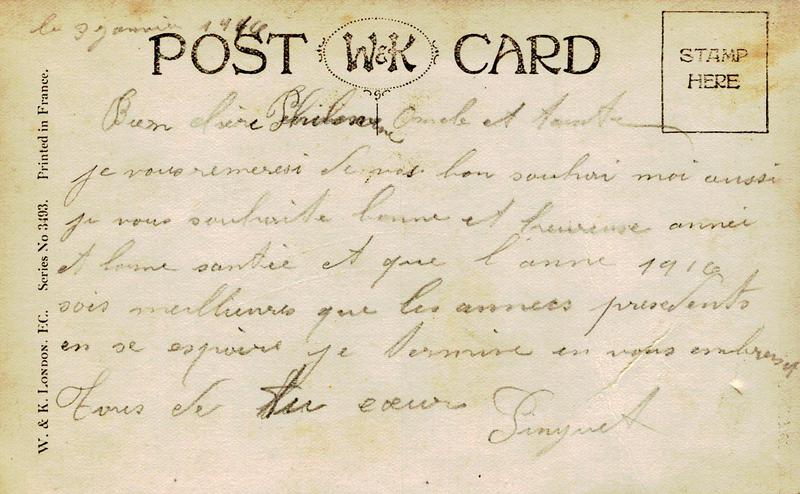 le 3 janvier 1916
POST W&K CARD
STAMP
HERE
Bien chère Philomène Oncle et tante
je vous remersi de vos bon souhai moi aussi
je vous souhaite bonne et heureuse année
et bonne santée et que l'anne 1916
sois meilleures que les annees presedents
en se espoire je termine en vous embrensent
Tous de tu coeur
W. & K. LONDON. E.C. Series No 3493. Printed in France.